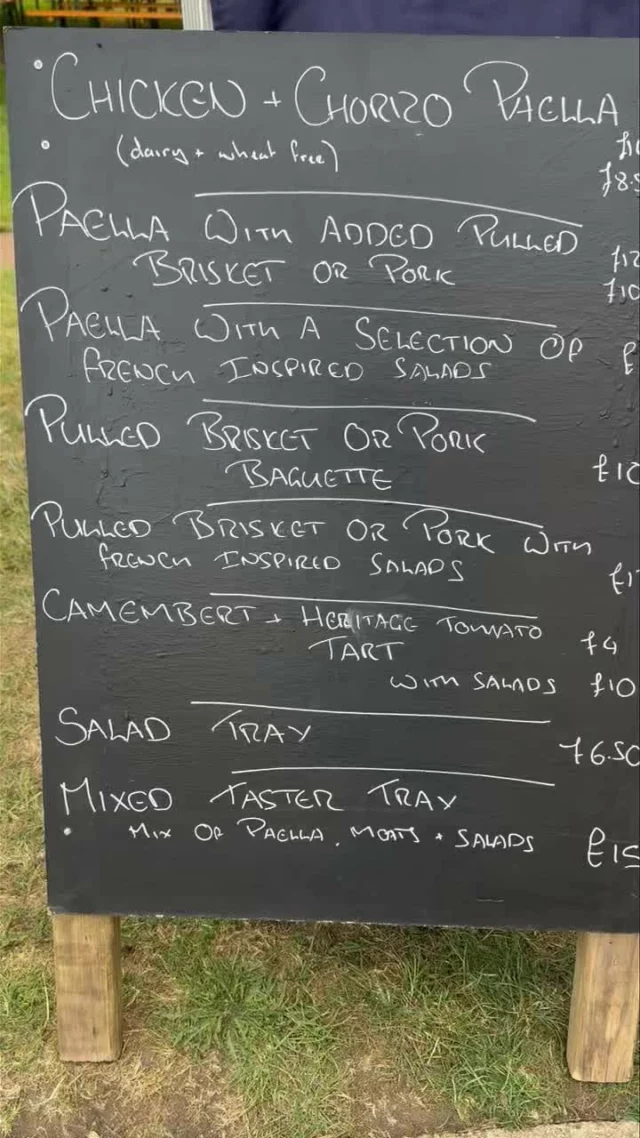 CHICKEN + CHORIZO PAELLA
(dairy + wheat free)
PAELLA WITH ADDED PULLED
BRISKET OR PORK
PAELLA WITH A SELECTION OF
FRENCH INSPIRED SALADS
PULLED BRISKET OR PORK
BAGUETTE
PULLED BRISKET OR PORK WITH
FRENCH INSPIRED SALADS
CAMEMBERT + HERITAGE TOMATO
TART £4
WITH SALADS £10
SALAD TRAY
£6.50
MIXED TASTER TRAY
MIX OF PAELLA, MEATS + SALADS £15